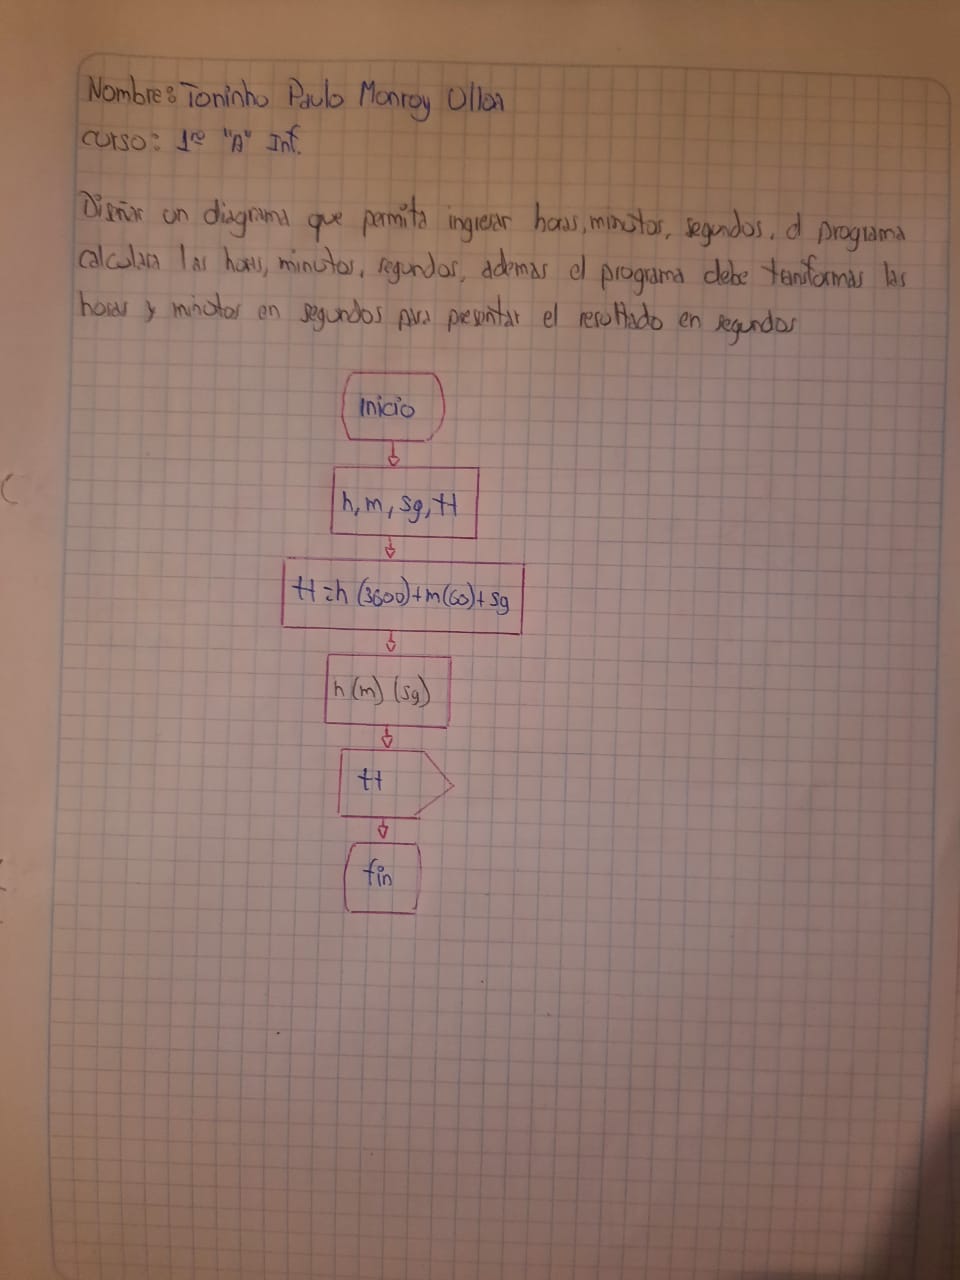 Nombre: Toninho Paulo Monroy Ulloa
curso: 1ro "A" Inf.
Diseñar un diagrama que permita ingresar horas, minutos, segundos, el programa
calculara las horas, minutos, segundos, ademas el programa debe transformas las
horas y minutos en segundos para presentar el resultado en segundos
Inicio
h, m, sg, tt
tt = h (3600) + m(60) + sg
h (m) (sg)
tt
fin